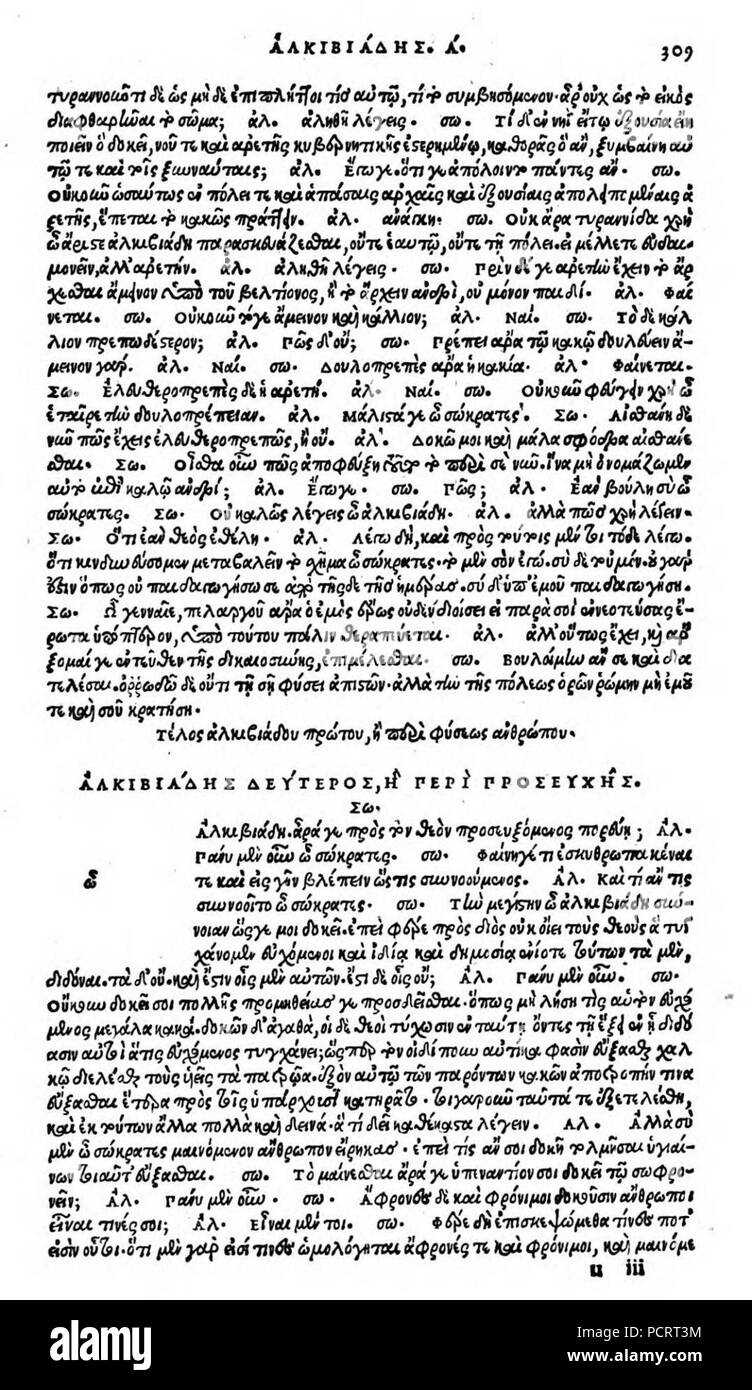 ἈΛΚΙΒΙΆΔΗΣ. Ά. 309
τυραννοῦντι δὲ ὡς μὴ δὲ ἐπιπλήττοι τίσ αὐτῷ, τί τὸ συμβησόμενον· ἆρ' οὐχ ὡς τὸ εἰκὸς
διαφθαρῆναι τὸ σῶμα; ἀλ. ἀληθῆ λέγεις. σω. Τί δ' ἐν νηῒ εἴ τῳ ἐξουσία εἴη
ποιεῖν ὃ δοκεῖ, νοῦ τε καὶ ἀρετῆς κυβερνητικῆς ἐστερημένῳ, καθορᾷς ἃ ἂν, ξυμβαίη αὐ
τῷ τε καὶ τοῖς ξυνναύταις; ἀλ. Ἔγωγε. ὅτι γε ἀπόλοιντο πάντες ἄν. σω.
Οὐκοῦν ὡσαύτως ἐν πόλει τε καὶ ἁπάσαις ἀρχαῖς καὶ ἐξουσίαις ἀπολειπομέναις ἀ
ρετῆς, ἕπεται τὸ κακῶς πράττειν. ἀλ. ἀνάγκη. σω. Οὐκ ἄρα τυραννίδα χρὴ
ὦ ἄριστε ἀλκιβιάδη παρασκευάζεσθαι, οὔτε ἑαυτῷ, οὔτε τῇ πόλει. εἰ μέλλετε εὐδαι
μονεῖν, ἀλλ' ἀρετήν. ἀλ. ἀληθῆ λέγεις. σω. Πρὶν δέ γε ἀρετὴν ἔχειν τὸ ἄρ
χεσθαι ἄμεινον ὑπὸ τοῦ βελτίονος, ἢ τὸ ἄρχειν ἀνδρὶ, οὐ μόνον παιδί. ἀλ. Φαί
νεται. σω. Οὐκοῦν τό γε ἄμεινον καὶ κάλλιον; ἀλ. Ναί. σω. Τὸ δὲ κάλ
λιον πρεπωδέστερον; ἀλ. Πῶς δ' οὔ; σω. Πρέπει ἄρα τῷ κακῷ δουλεύειν ἄ-
μεινον γάρ. ἀλ. Ναί. σω. Δουλοπρεπὲς ἄρα ἡ κακία. ἀλ. Φαίνεται.
Σω. Ἐλευθεροπρεπὲς δὲ ἡ ἀρετή. ἀλ. Ναί. σω. Οὐκοῦν φεύγειν χρὴ ὦ
ἑταῖρε τὴν δουλοπρέπειαν. ἀλ. Μάλιστά γε ὦ σώκρατες. Σω. Αἰσθάνῃ δὲ
νῦν πῶς ἔχεις ἐλευθεροπρεπῶς, ἢ οὔ. ἀλ. Δοκῶ μοι καὶ μάλα σφόδρα αἰσθάνε
σθαι. Σω. Οἶσθα οὖν πῶς ἀποφεύξῃ τοῦτο τὸ περὶ σὲ νῦν. ἵνα μὴ ὀνομάζωμεν
αὐτὸ ἐπὶ καλῷ ἀνδρί; ἀλ. Ἔγωγε. σω. Πῶς; ἀλ. Ἐὰν βούλῃ σὺ ὦ
σώκρατες. Σω. Οὐ καλῶς λέγεις ὦ ἀλκιβιάδη. ἀλ. ἀλλὰ πῶς χρὴ λέγειν.
Σω. Ὅτι ἐὰν θεὸς ἐθέλῃ. ἀλ. Λέγω δὴ, καὶ πρὸς τούτοις μέντοι τόδε λέγω.
ὅτι κινδυνεύσομεν μεταβαλεῖν τὸ σχῆμα ὦ σώκρατες. τὸ μὲν σὸν ἐγώ. σὺ δὲ τοὐμόν. οὐ γὰρ
ἔστιν ὅπως οὐ παιδαγωγήσω σε ἀπὸ τῆσδε τῆσ ἡμέρασ. σὺ δ' ὑπ' ἐμοῦ παιδαγωγήσῃ.
Σω. Ὦ γενναῖε, πελαργοῦ ἄρα ὁ ἐμὸς ἔρως οὐδὲν διοίσει εἰ παρὰ σοὶ ἐννεοτεύσας ἔ-
ρωτα ὑπόπτερον, ὑπὸ τούτου πάλιν θεραπεύεται. ἀλ. ἀλλ' οὕτως ἔχει, καὶ ἄρ
ξομαί γε ἐντεῦθεν τῆς δικαιοσύνης, ἐπιμέλεσθαι. σω. Βουλοίμην ἄν σε καὶ δια
τελέσαι. ὀρρωδῶ δὲ οὔτι τῇ σῇ φύσει ἀπιστῶν. ἀλλὰ τὴν τῆς πόλεως ὁρῶν ῥώμην μὴ ἐμοῦ
τε καὶ σοῦ κρατήσῃ.
Τέλος ἀλκιβιάδου πρώτου, ἢ περὶ φύσεως ἀνθρώπου.
ἈΛΚΙΒΙΆΔΗΣ ΔΕΎΤΕΡΟΣ, Ἢ ΠΕΡῚ ΠΡΟΣΕΥΧΗ͂Σ.
Σω.
ὦ
Ἀλκιβιάδη. ἆρά γε πρὸς τὸν θεὸν προσευξόμενος πορεύῃ; Ἀλ.
Πάνυ μὲν οὖν ὦ σώκρατες. σω. Φαίνῃ γέ τι ἐσκυθρωπακέναι
τε καὶ εἰς γῆν βλέπειν ὥς τις συννοούμενος. Ἀλ. Καὶ τί ἄν τις
συννοοῖτο ὦ σώκρατες. σω. Τὴν μεγίστην ὦ ἀλκιβιάδη σύν-
νοιαν ὥς γε μοι δοκεῖ. ἐπεὶ φέρε πρὸς διὸς οὐκ οἴει τοὺς θεοὺς ἃ τυγ
χάνομεν εὐχόμενοι καὶ ἰδίᾳ καὶ δημοσίᾳ ἐνίοτε τούτων τὰ μὲν,
διδόναι. τὰ δ' οὔ. καὶ ἔστιν οἷς μὲν αὐτῶν. ἔστι δὲ οἷς οὔ; Ἀλ. Πάνυ μὲν οὖν. σω.
Οὐκοῦν δοκεῖ σοι πολλῆς προμηθείασ γε προσδεῖσθαι. ὅπως μὴ λήσῃ τὶς αὑτὸν εὐχό
μενος μεγάλα κακά. δοκῶν δ' ἀγαθά, οἱ δὲ θεοὶ τύχωσιν ἐν ταύτῃ ὄντες τῇ ἕξει ἐν ᾗ διδό
ασιν αὐτοὶ ἅ τις εὐχόμενος τυγχάνει; ὥσπερ τὸν οἰδίπουν αὐτίκα φασὶν εὔξασθαι χαλ
κῷ διελέσθαι τοὺς υἱεῖς τὰ πατρῷα. ἐξὸν αὐτῷ τῶν παρόντων κακῶν ἀποτροπήν τινα
εὔξασθαι ἕτερα πρὸς τοῖς ὑπάρχουσι κατηρᾶτο. τοιγαροῦν ταῦτά τε ἐξετελέσθη,
καὶ ἐκ τούτων ἄλλα πολλὰ καὶ δεινά. ἃ τί δεῖ καθ' ἕκαστα λέγειν. Ἀλ. Ἀλλὰ σὺ
μὲν ὦ σώκρατες μαινόμενον ἄνθρωπον εἴρηκασ. ἐπεὶ τίς ἄν σοι δοκῇ τολμῆσαι ὑγιαί-
νων τοιαῦτ' εὔξασθαι. σω. Τὸ μαίνεσθαι ἆρά γε ὑπεναντίον σοι δοκεῖ τῷ σωφρο-
νεῖν; Ἀλ. Πάνυ μὲν οὖν. σω. Ἄφρονεσ δὲ καὶ φρόνιμοι δοκοῦσιν ἄνθρωποι
εἶναι τινές σοι; Ἀλ. Εἶναι μέντοι. σω. Φέρε δὴ ἐπισκεψώμεθα τίνεσ ποτ'
εἰσὶν οὗτοι. ὅτι μὲν γάρ εἰσί τινεσ ὡμολόγηται ἄφρονές τε καὶ φρόνιμοι, καὶ μαινόμε
u iii
alamy
Image ID: PCRT3M
www.alamy.com